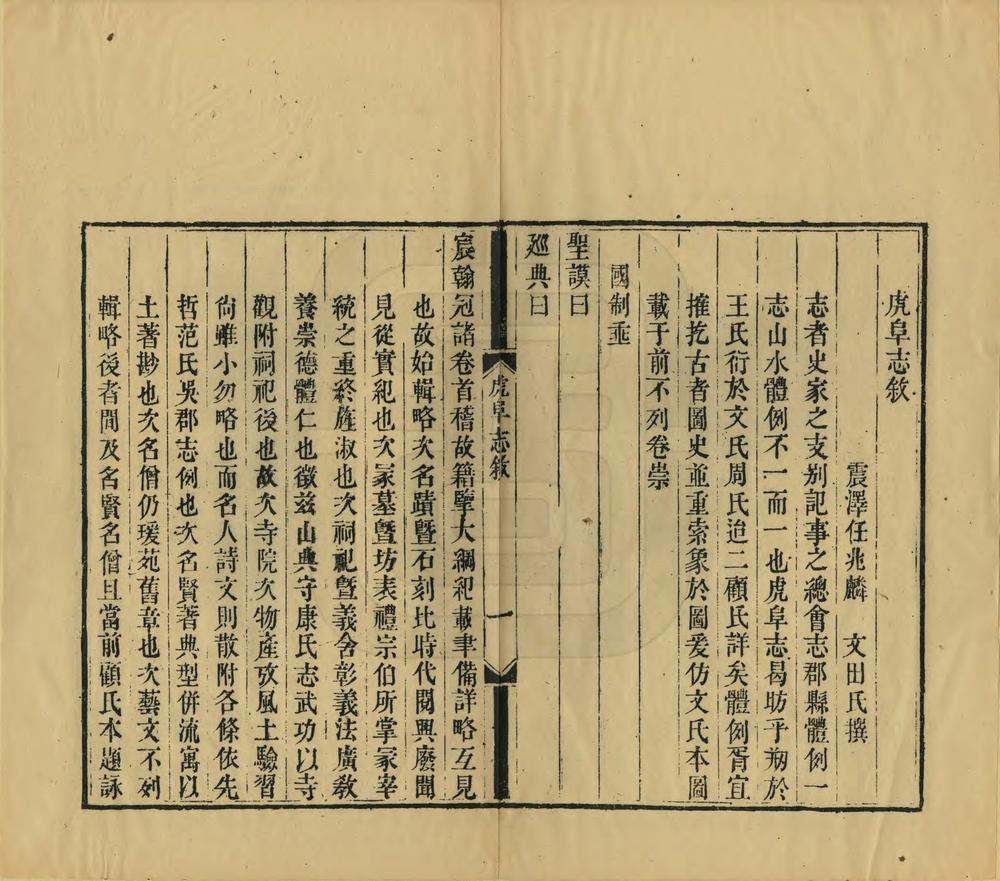 虎阜志敘
震澤任兆麟　文田氏撰
志者史家之支别記事之總會志郡縣體例一
志山水體例不一而一也虎阜志曷昉乎昉於
王氏衍於文氏周氏迨二顧氏詳矣體例胥宜
摧扢古者圖史並重索象於圖爰仿文氏本圖
載于前不列卷崇
國制垂
聖謨曰
廵典曰
虎阜志敘
一
宸翰冠諸卷首稽故籍擥大綱紀載聿備詳略互見
也故始輯略次名蹟曁石刻比時代閱興廢聞
見從實紀也次冢墓曁坊表禮宗伯所掌冢宰
統之重終旌淑也次祠祀曁義舍彰義法廣教
養崇德體仁也徵茲山典守康氏志武功以寺
觀附祠祀後也故次寺院次物產攷風土驗習
尙雖小勿略也而名人詩文則散附各條依先
哲范氏吳郡志例也次名賢著典型併流寓以
土著尠也次名僧仍瑗苑舊章也次藝文不列
輯略後者間及名賢名僧且當前顧氏本題詠